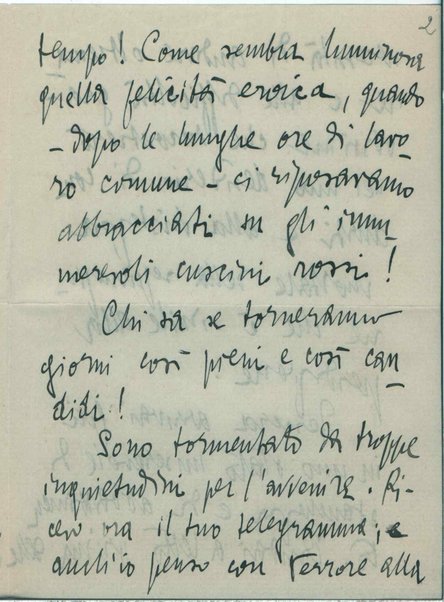 2
tempo! Come sembra luminosa
quella felicità eroica, quando
– dopo le lunghe ore di lavo-
ro comune – ci riposavamo
abbracciati su gli innu-
merevoli cuscini rossi!
Chi sa se torneranno
giorni così pieni e così can-
didi!
Sono tormentato da troppe
inquietudini per l'avvenire. Ri-
cevo ora il tuo telegramma; e
anch'io penso con terrore alla